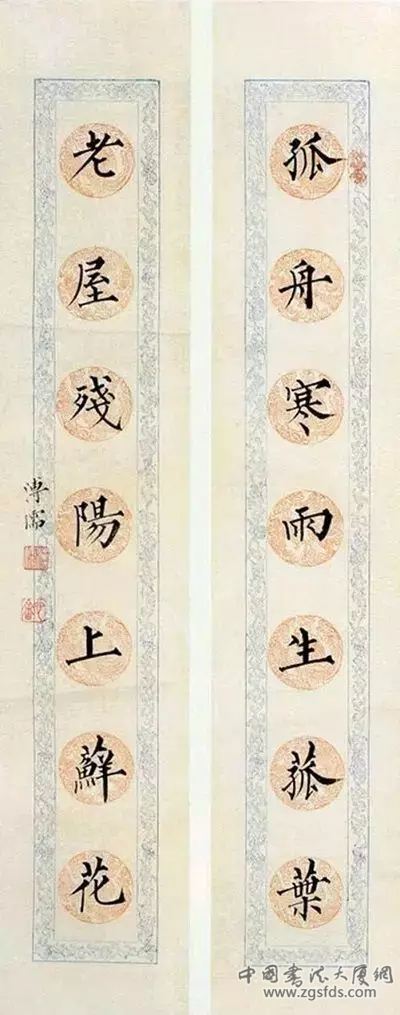 孤舟寒雨生菰葉
老屋殘陽上蘚花
溥儒
中國書法大廈網
www.zgsfds.com